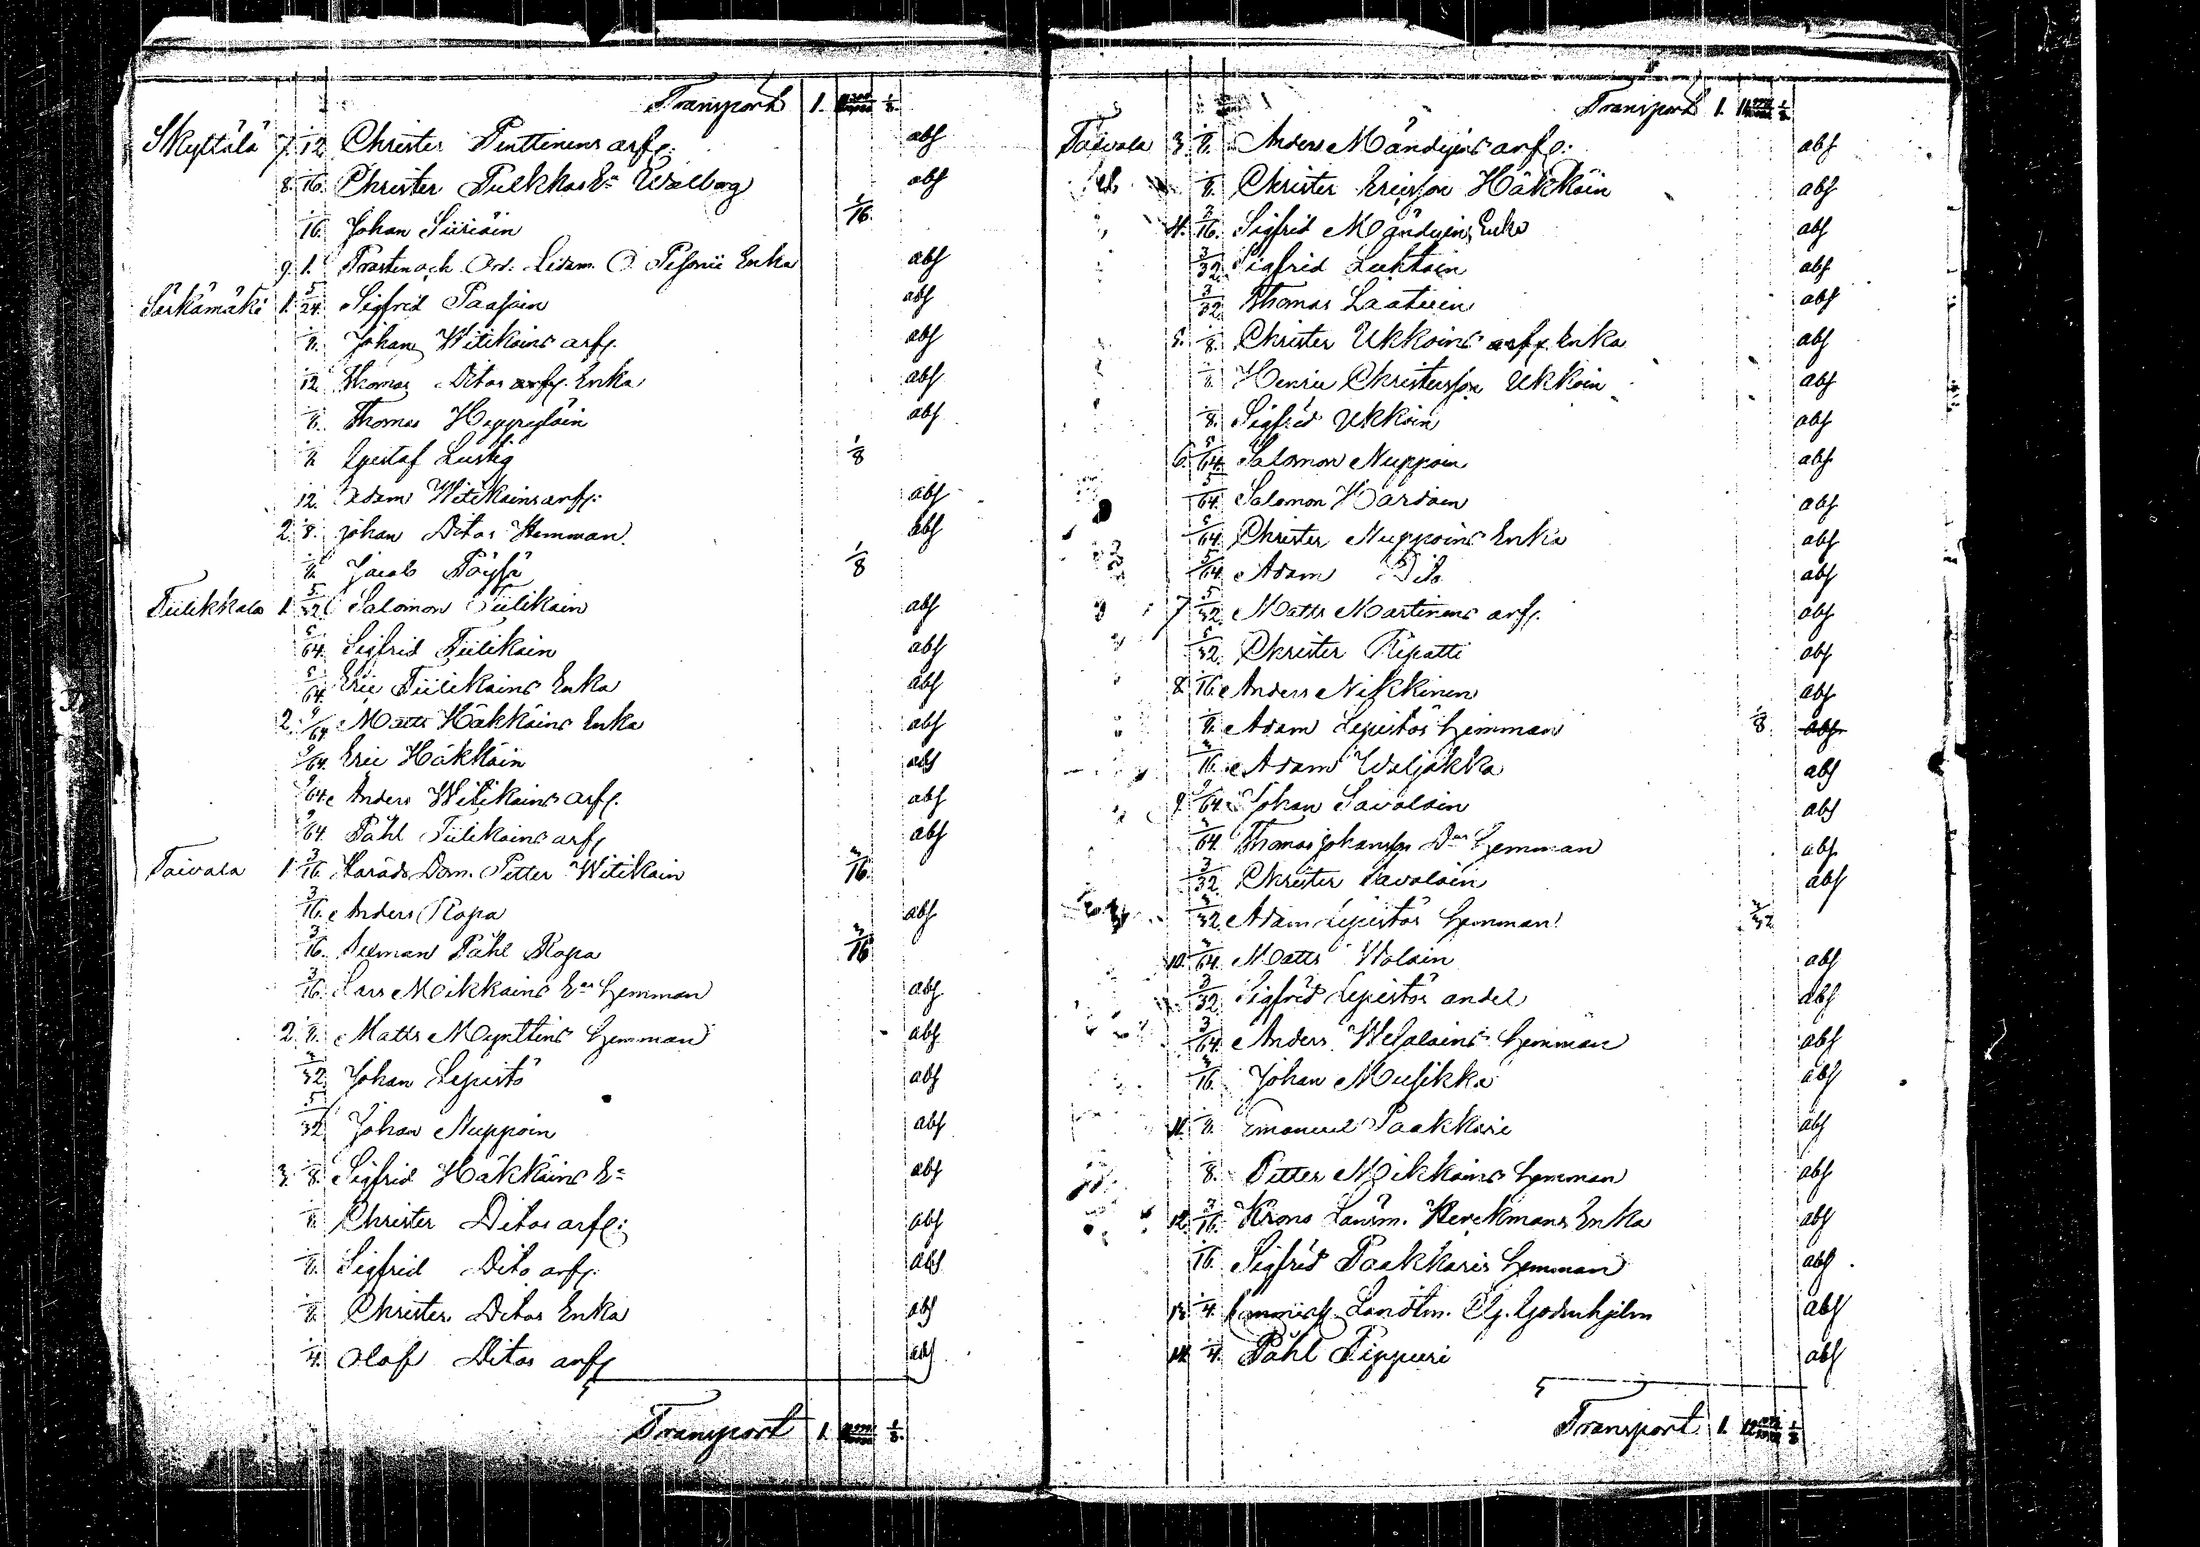 Transport 1.
Skyttälä 7. 1/12 Christer Penttinens arfg: abs
8. 1/16. Christer Pulkkas Ea Walborg abs
1/16. Johan Siiriäin 1/16.
9. 1. Prosten och Ord: Ledam. Enka abs
Särkämäki 1. 5/24 Sigfrid Paasoin abs
1/8. Johan Witikains arfg. abs
1/12 Thomas Ditos arfg. Enka abs
1/8. Thomas abs
1/8 Gustaf Lustig 1/8
1/12. Adam Witikains arfg: abs
2. 1/8. Johan Ditos Hemman abs
1/8. Jacob Pöyhä 1/8
Tiilikkala 1. 5/32 Salomon Tiilikain abs
5/64. Sigfrid Tiilikain abs
5/64. Eric Tiilikains Enka abs
2. 9/64 Matts Häkkäins Enka abs
9/64. Eric Häkkäin abs
9/64. Anders Witikains arfg. abs
9/64. Påhl Tiilikains arfg abs
Taivala 1. 3/16 Härads Dom. Petter Witikain 3/16.
3/16. Anders Ropa abs
3/16. Påhl Ropa 3/16
3/16. Lars Mikkains Eas Hemman abs
2. 1/8. Matts Mynttins Hemman abs
3/32 Johan Lepistö abs
5/32 Johan Nuppoin abs
3. 1/8. Sigfrid Häkkäins Ea abs
1/8. Christer Ditos arfg: abs
1/8. Sigfrid Dito arfg. abs
1/8. Christer Ditos Enka abs
1/4. Olof Ditos arfg abs
Transport 1.
Transport 1.
Taivala 3. 1/8. Anders Mändyins arfg: abs
1/8. Christer Ericsson Häkkäin abs
4. 3/16. Sigfrid Mändyins Enka abs
3/32. Sigfrid Luktain abs
3/32. Thomas Laatuin abs
5. 1/8. Christer Ukkoins arfg. Enka abs
1/8 Henric Christersson Ukkoin abs
1/8. Sigfrid Ukkoin abs
6. 5/64. Salomon Nuppoin abs
5/64. Salomon Hardoin abs
5/64. Christer Nuppoins Enka abs
5/64. Adam Dito abs
7 5/32. Matts Martinens arfg. abs
5/32. Christer Ripatti abs
8. 1/16. Anders Nikkinen abs
1/8. Adam Lepistös Hemman 1/8. abs
3/16. Adam Waljakka abs
9. 9/64. Johan Savolain abs
3/64. Thomas Johansson Das Hemman abs
3/32. Christer Savolain abs
3/32. Adam Lepistös Hemman 3/32
10. 3/64. Matts Wolain abs
3/32. Sigfrid Lepistös andel abs
3/64. Anders Hemman abs
3/16. Johan Musikka abs
11. 1/8. Emanuel Paakkari abs
1/8. Petter Mikkains Hemman abs
12. 3/16. Krono Länsm. Herckmans Enka abs
1/16. Sigfrid Paakkaris Hemman abs
13. 1/4. Landtm. Godenhjelm abs
14. 1/4. Påhl Pippuri abs
Transport 1.